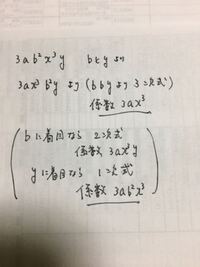 3ab²x³y bとyより
3ax³ b²y より (bbyより3次式)
係数 3ax³
bに着目なら 2次式
係数 3ax³y
yに着目なら 1次式
係数 3ab²x³